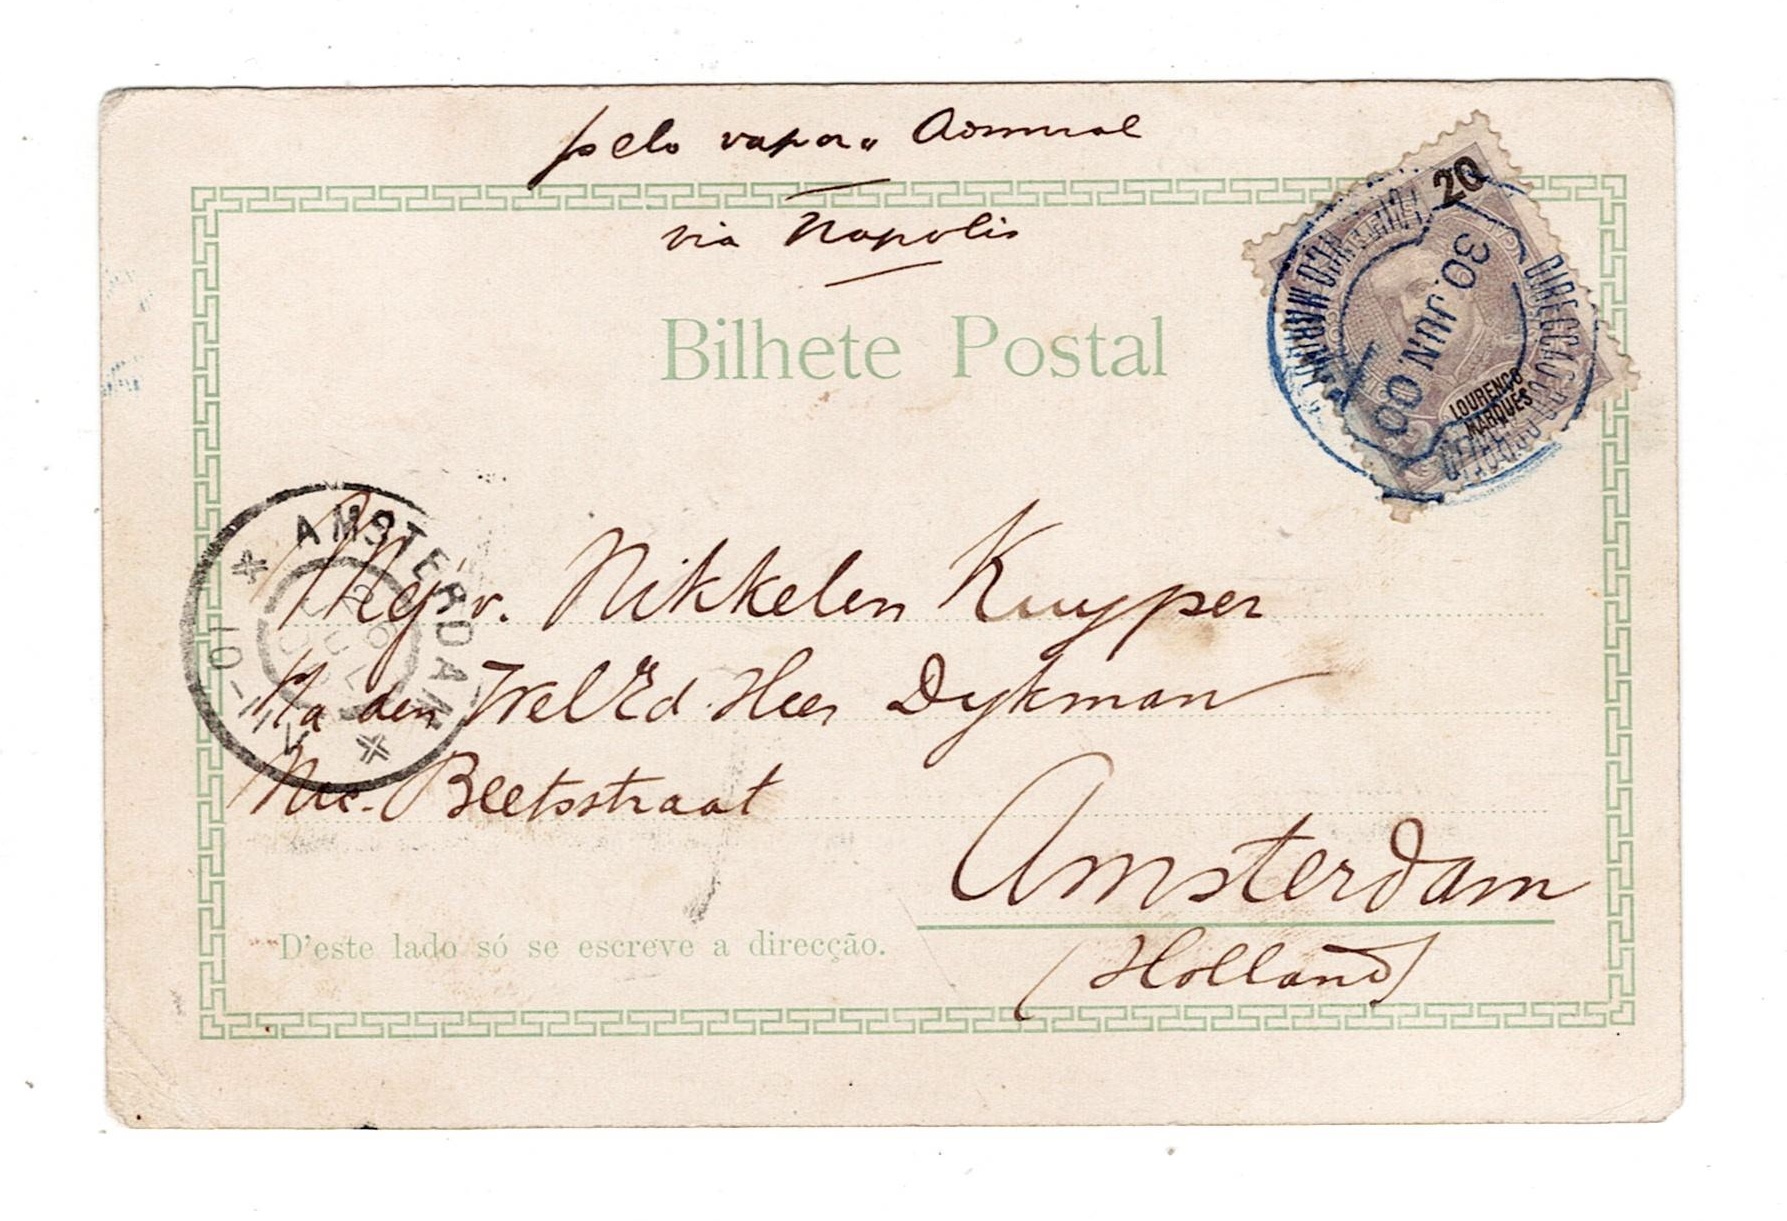 pelo vapor „ Admiral
via Napolis
20
30. JUN. 00
DIRECÇÃO DO CORREIO
LOURENÇO
MARQUES
Bilhete Postal
AMSTERDAM
Mej v. Nikkelen Kuyper
p/a den WelEd. Heer Dykman
Nic. Beetsstraat
Amsterdam
(Holland)
D'este lado só se escreve a direcção.